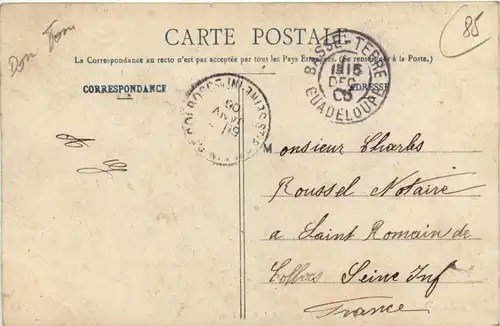 Dom Tom
85
CARTE POSTALE
La Correspondance au recto n'est pas acceptée par tous les Pays Etrangers. (Se renseigner à la Poste.)
CORRESPONDANCE
ADRESSE
BASSE-TERRE
DEC
GUADELOUPE
SEINE INF
JANV
Monsieur Charles
Roussel Notaire
a Saint Romain de
Colbosc Seine Inf
France